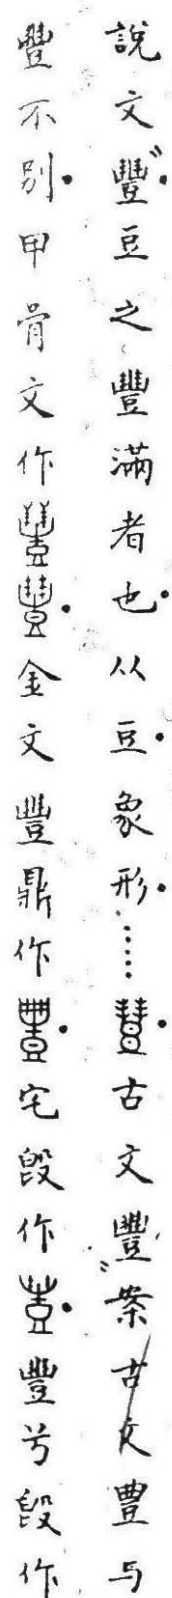 說文豐〞豆之豐滿者也从豆象形……古文豐〞案古文豊与
豐不別甲骨文作金文豐鼎作宅𣪘作豐兮𣪘作